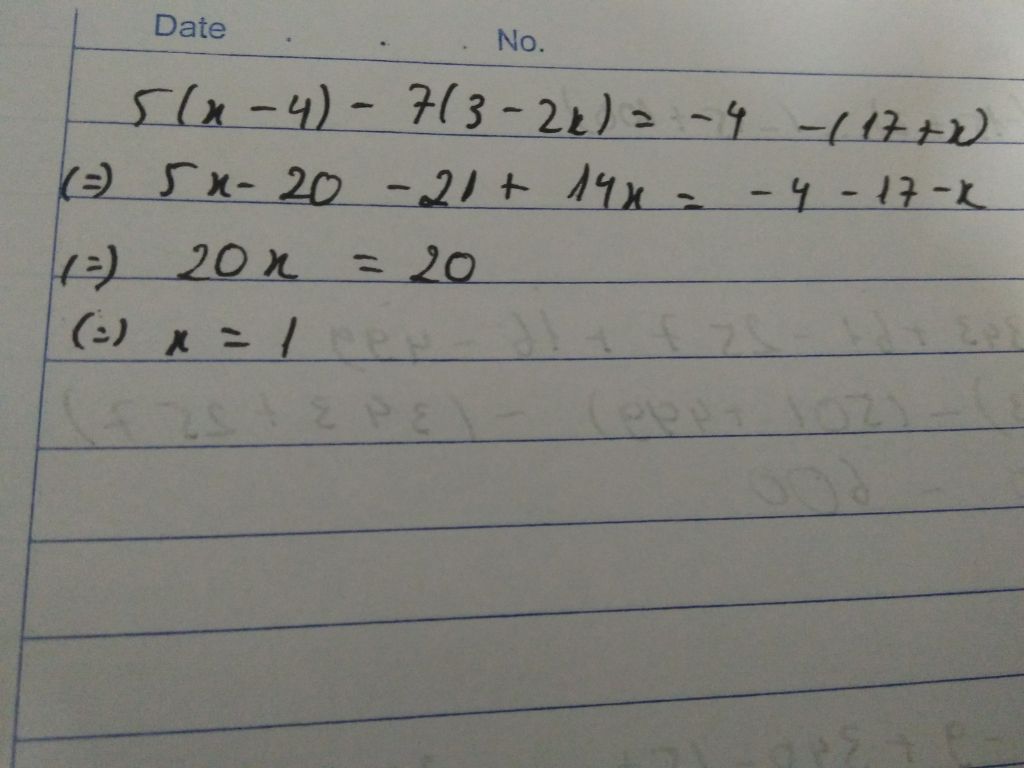 Date . . . No.
5(x - 4) - 7(3 - 2x) = -4 -(17 + x)
(=) 5x - 20 - 21 + 14x = -4 - 17 - x
(=) 20x = 20
(=) x = 1